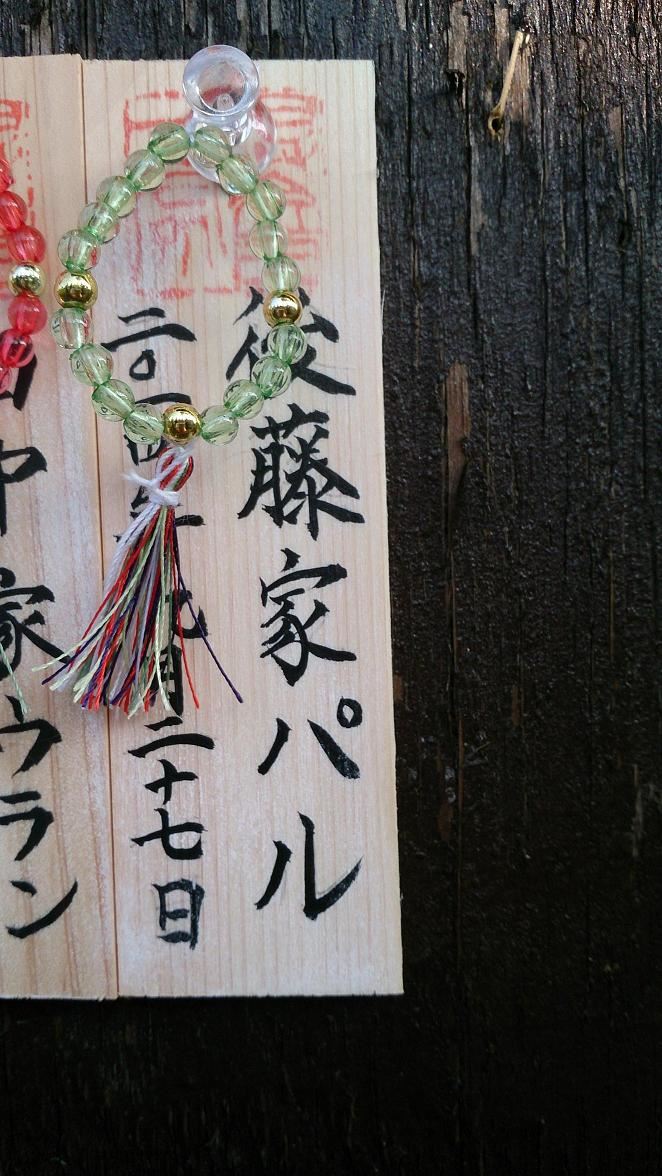 後藤家パル
二〇一四年九月二十七日
中家ウラン